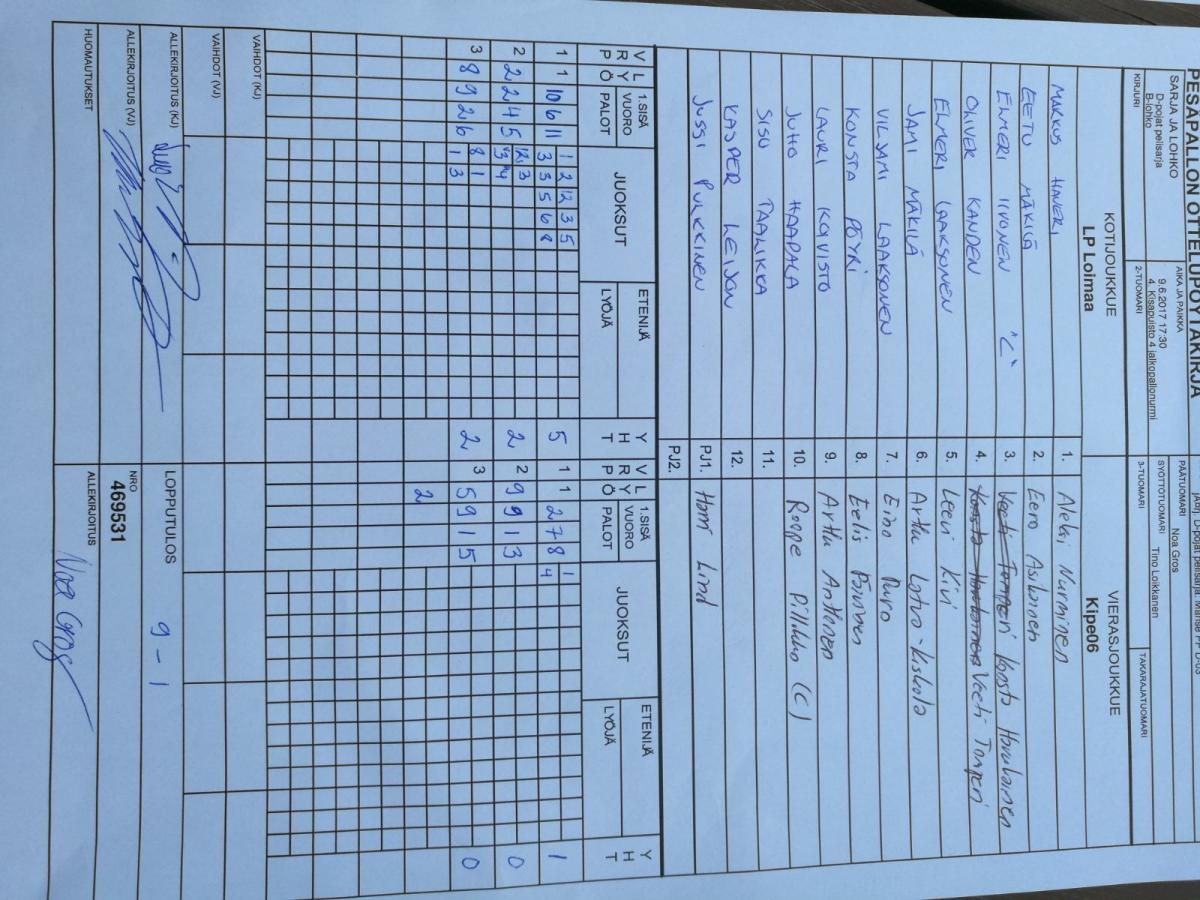 PESÄPALLON OTTELUPÖYTÄKIRJA
SARJA JA LOHKO
D-pojat pelisarja
B-lohko
AIKA JA PAIKKA
9.6.2017 17:30
4. Kisapuisto 4 jalkopallonurmi
PÄÄTUOMARI Noa Gros
SYÖTTÖTUOMARI Tino Loikkanen
KIRJURI
2-TUOMARI
3-TUOMARI
TAKARAJATUOMARI
KOTIJOUKKUE
LP Loimaa
VIERASJOUKKUE
Kipe06
MARKUS HAVERI 1. Aleksi Nurminen
EETU MÄKILÄ 2. Eero Asikainen
ELMERI IIVONEN "C" 3. Veeti Tamperi Konsta Havulainen
OLIVER KANDEN 4. Veeti Tamperi
ELMERI LAAKSONEN 5. Leevi Kivi
JAMI MÄKILÄ 6. Arttu Latva-Kiskola
VILJAMI LAAKSONEN 7. Eino Puro
KONSTA PÖYRI 8. Eelis
LAURI KOIVISTO 9. Arttu Anttonen
JUHO HAAPALA 10. Roope (C)
SISU TAALIKKA 11.
KASPER LEIJON 12.
JUSSI PULKKINEN PJ1. Harri Lind
PJ2.
V R Ö
L Y P
1.SISÄ VUORO
PALOT
JUOKSUT
ETENIJÄ
LYÖJÄ
Y H T
V R Ö
L Y P
1.SISÄ VUORO
PALOT
JUOKSUT
ETENIJÄ
LYÖJÄ
Y H T
1 1 10 6 11 1 2 12 3 5 5 1 1 2 7 8 1 1
3 3 5 6 8 4
2 2 2 4 5 12 3 2 2 9 9 1 3 0
3 8 9 2 6 8 1 2 3 5 9 1 5 0
1 3
2
VAIHDOT (KJ)
VAIHDOT (VJ)
ALLEKIRJOITUS (KJ)
LOPPUTULOS 9 - 1
ALLEKIRJOITUS (VJ)
NRO
469531
HUOMAUTUKSET
ALLEKIRJOITUS
Noa Gros